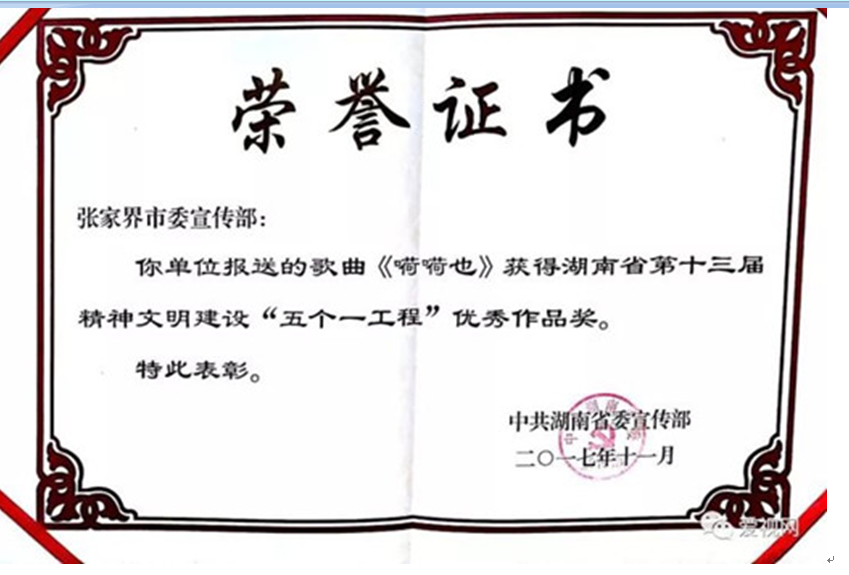 荣誉证书
张家界市委宣传部：
你单位报送的歌曲《嗬嗬也》获得湖南省第十三届
精神文明建设“五个一工程”优秀作品奖。
特此表彰。
中共湖南省委宣传部
二〇一七年十一月
爱视网